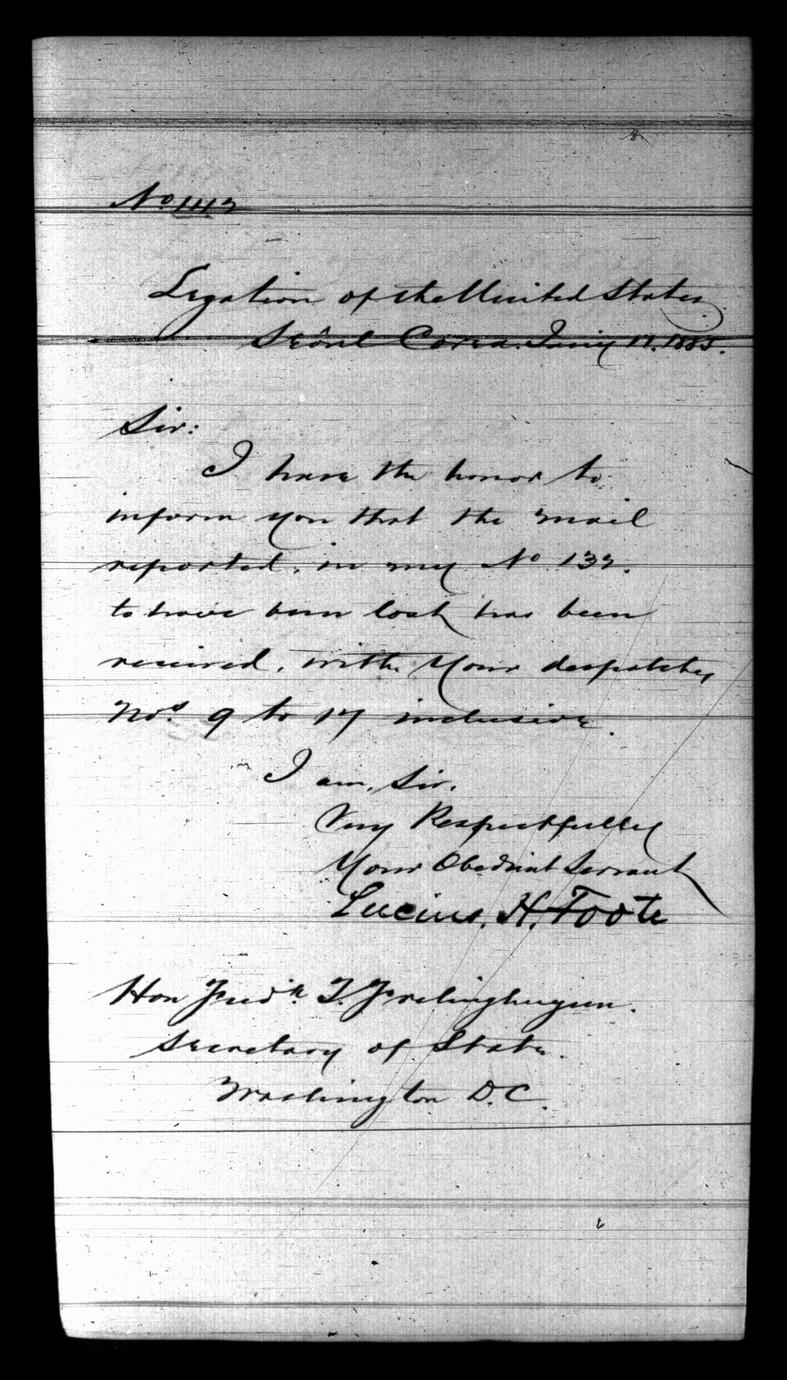 No 143
Legation of the United States.
Söul Corea. Jany 17. 1885.
Sir:
I have the honor to
inform you that the mail
reported, in my No 132.
to have been lost has been
received, with Your despatches
Nos 9 to 17 inclusive.
I am, Sir.
Very Respectfully
Your Obedient Servant
Lucius. H. Foote
Hon Fredk T. Frelinghuysen.
Secretary of State.
Washington D.C.